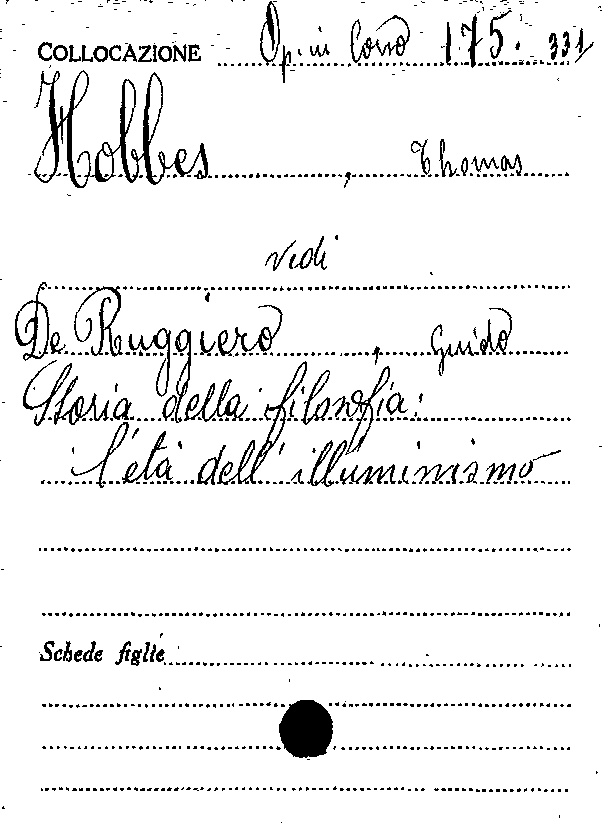 COLLOCAZIONE Op. in Corso 175. 331
Hobbes, Thomas
vedi
De Ruggiero, Guido
Storia della filosofia:
l'età dell'illuminismo
Schede figlie